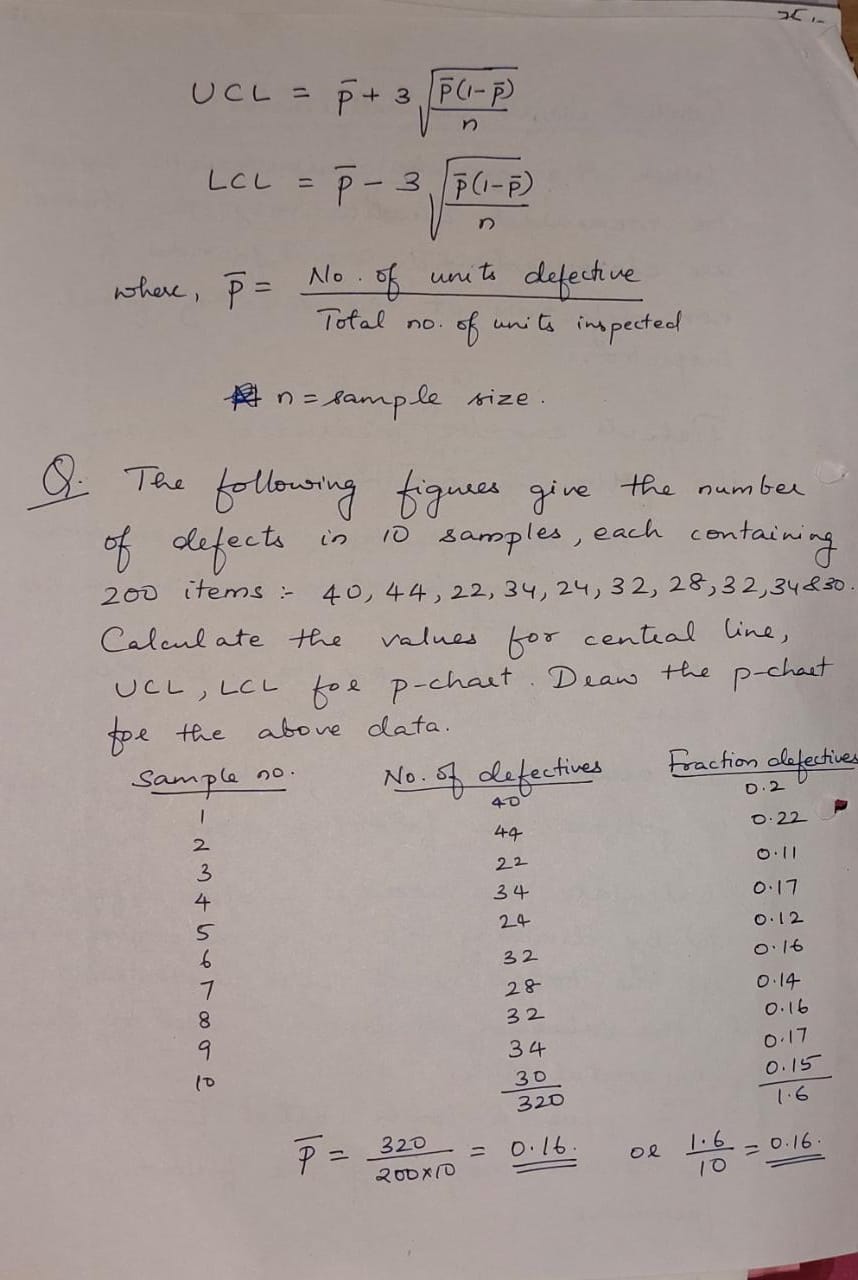 UCL = p̄ + 3 √(p̄(1-p̄)/n)
LCL = p̄ - 3 √(p̄(1-p̄)/n)
where, p̄ = No. of units defective / Total no. of units inspected
n = sample size.
Q. The following figures give the number
of defects in 10 samples, each containing
200 items :- 40, 44, 22, 34, 24, 32, 28, 32, 34 & 30.
Calculate the values for central line,
UCL, LCL for p-chart. Draw the p-chart
for the above data.
Sample no. No. of defectives Fraction defectives
1 40 0.2
2 44 0.22
3 22 0.11
4 34 0.17
5 24 0.12
6 32 0.16
7 28 0.14
8 32 0.16
9 34 0.17
10 30 0.15
320 1.6
p̄ = 320 / 200×10 = 0.16. or 1.6 / 10 = 0.16.